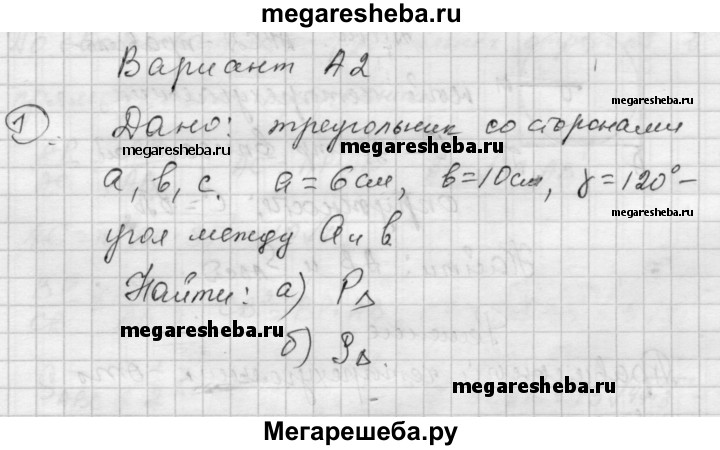 megaresheba.ru
Вариант А2
megaresheba.ru
1) Дано: треугольник со сторонами
megaresheba.ru
megaresheba.ru
а, в, с. a = 6 см, в = 10 см, γ = 120° –
megaresheba.ru
угол между а и в
Найти: а) P△
megaresheba.ru
б) S△
megaresheba.ru
Мегарешеба.ру